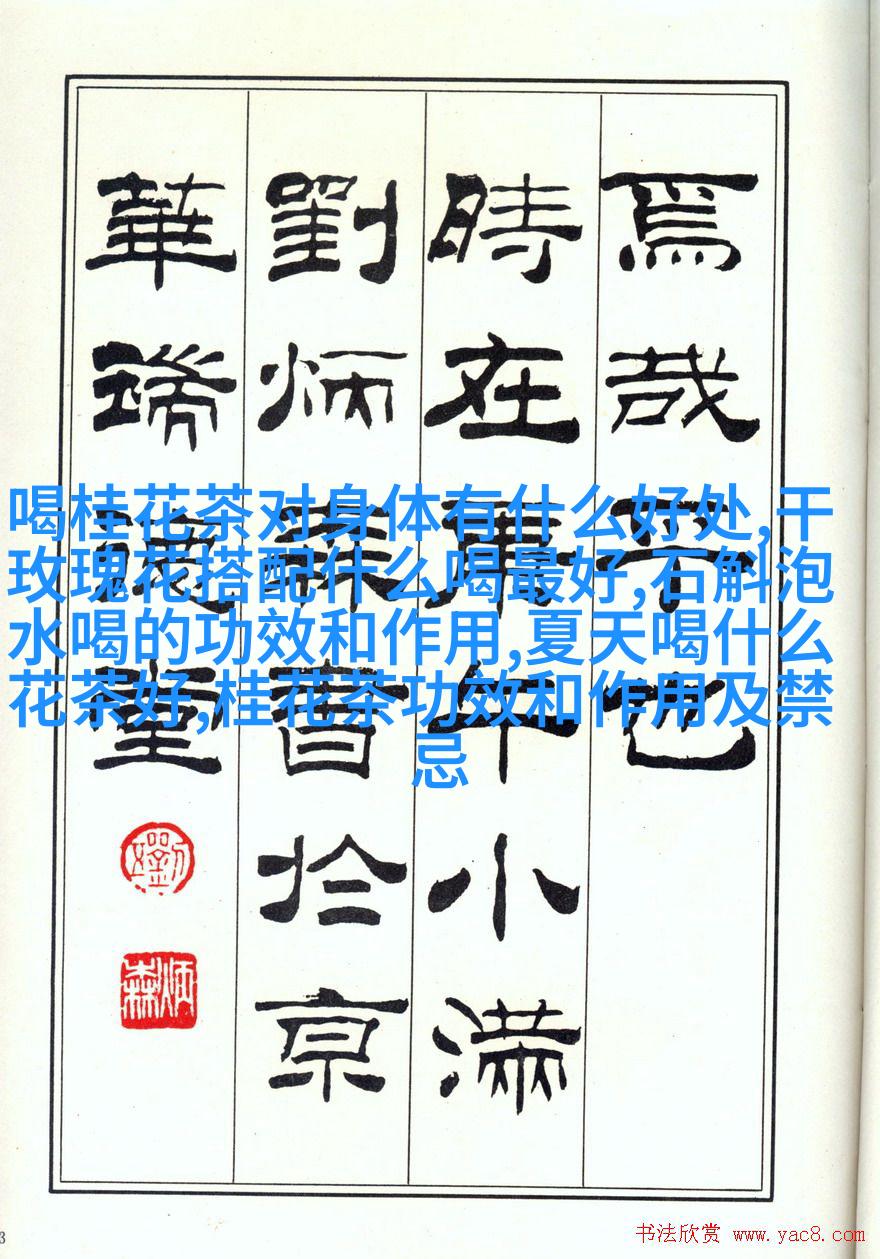 焉哉乎也
時在庚午小滿
劉炳森書於京
華
喝桂花茶对身体有什么好处,干
玫瑰花搭配什么喝最好,石斛泡
水喝的功效和作用,夏天喝什么
花茶好,桂花茶功效和作用及禁
忌
劉
炳森
书法欣赏 www.yac8.com
3